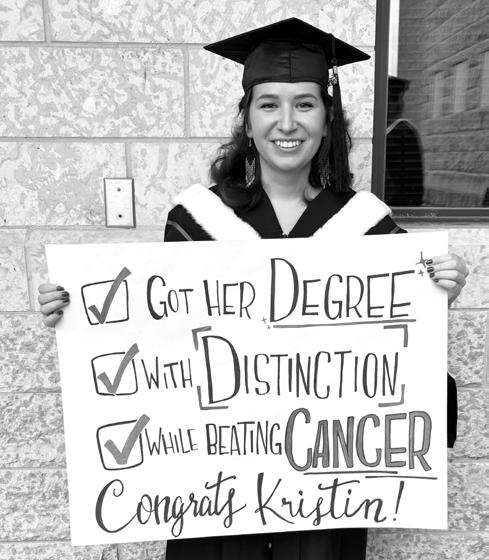 Got her Degree
With Distinction
While beating Cancer
Congrats Kristin!